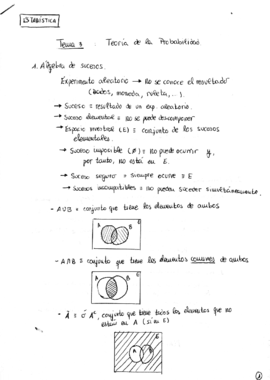 ESTADÍSTICA
Tema 3 Teoría de la Probabilidad.
1. Álgebra de sucesos.
Experimento aleatorio → no se conoce el resultado
(dados, moneda, ruleta, ...).
→ Suceso = resultado de un exp. aleatorio.
→ Suceso elemental = no se puede descomponer
→ Espacio muestral (E) = conjunto de los sucesos
elementales.
→ Suceso imposible (∅) = no puede ocurrir y,
por tanto, no está en E.
→ Suceso seguro = siempre ocurre = E
→ Sucesos incompatibles = no pueden suceder simultáneamente.
- A∪B = conjunto que tiene los elementos de ambos
E
A B
- A∩B = conjunto que tiene los elementos comunes de ambos
E
A B
- Ā = ó Aᶜ, conjunto que tiene todos los elementos que no
están en A (sí en E)
E
A B
1